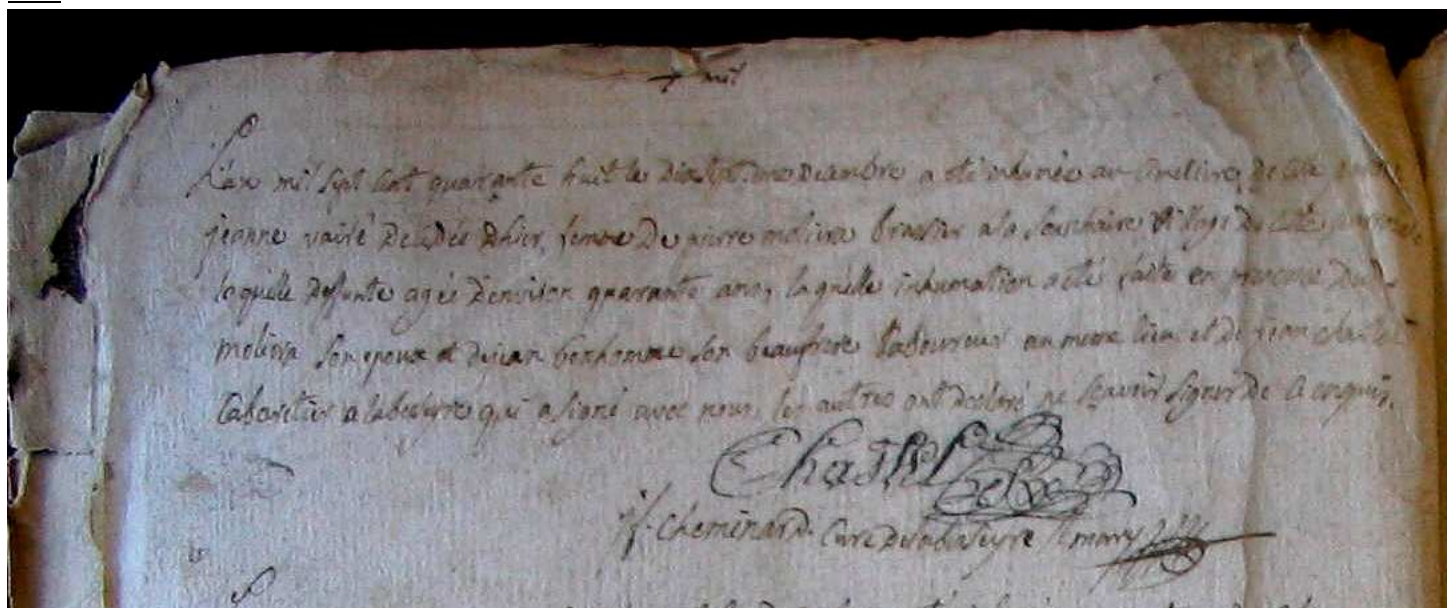 mil
L'an mil sept cent quarante huit le dix sept decembre a été inhumée au cimetiere de cette
jeanne décédée d'hier, femme de pierre moliera brassier a la souchaire village de cette paroisse
laquelle defunte agée d'environ quarante ans, laquelle inhumation a eté faite en presence dud.
moliera son epoux et de jean bonhomme son beaufrere laboureur au meme lieu et de jean chastel
cabaretier a labesseyre qui a signé avec nous, les autres ont declaré ne sçavoir signer de ce enquis.
Chastel
Cheminard. Curé de labesseyre St mary